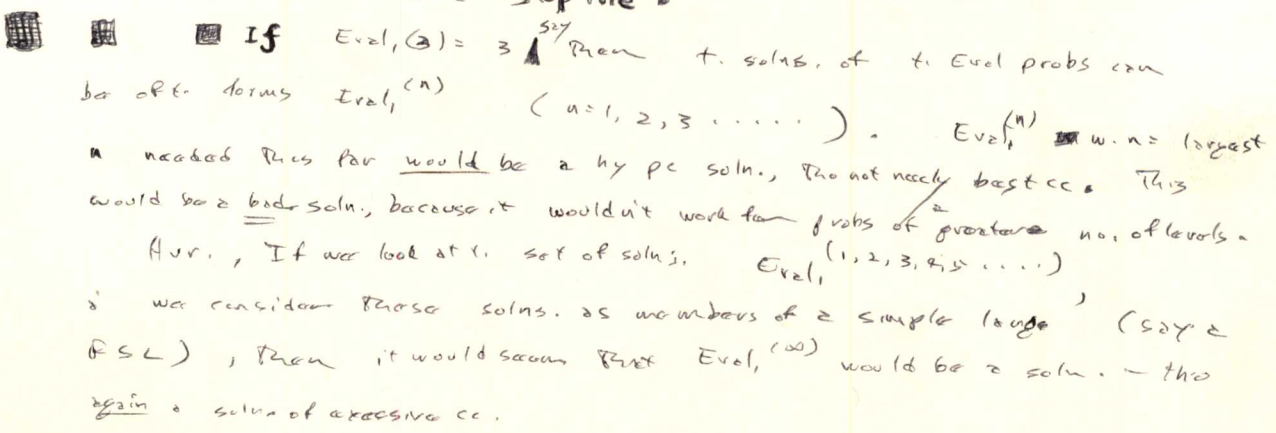 If Eval₁(3) = 3 say Then t. solns. of t. Eval probs can
be of t. forms Eval₁^(n) (n=1, 2, 3 .....). Eval₁^(n) w. n = largest
n needed thus far would be a hy pc soln., tho not necly best cc. This
would be a bad soln., because it wouldn't work for probs of a greater no. of levels.
Hvr., If we look at t. set of solns. Eval₁^(1, 2, 3, 4, 5 ....),
& we consider these solns. as members of a simple lange (say a
FSL), then it would seem that Eval₁^(∞) would be a soln. – tho
again a soln of excessive cc.